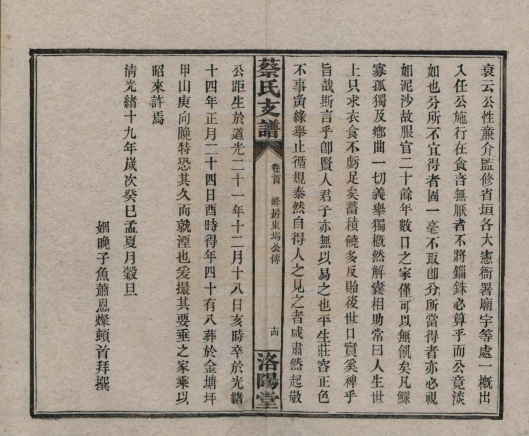 哀云公性亷介監修省垣各大憲衙署廟宇等處一槪出
入任公施行在貪吝無厭者不將錙銖必算乎而公竟淡
如也分所不宜得者固一毫不取卽分所當得者亦必視
如泥沙故服官二十餘年數口之家僅可以無飢矣凡鰥
寡孤獨及鄉曲一切義舉獨慨然解囊相助常曰人生世
上只求衣食不虧足矣蓄積饒多反貽後世口實奚裨乎
旨哉斯言乎卽賢人君子亦無以易之也平生莊容正色
不事夤緣舉止循規泰然自得人之見之者咸肅然起敬
蔡氏支譜
卷首
峰房東塢公傳
十四
洛陽堂
公距生於道光二十一年十二月十八日亥時卒於光緖
十四年正月二十四日酉時得年四十有八葬於金塘坪
甲山庚向晩特恐其久而就湮也爰撮其要垂之家乘以
昭來許焉
淸光緖十九年歲次癸巳孟夏月穀旦
姻晩子魚蕭恩燦頓首拜撰